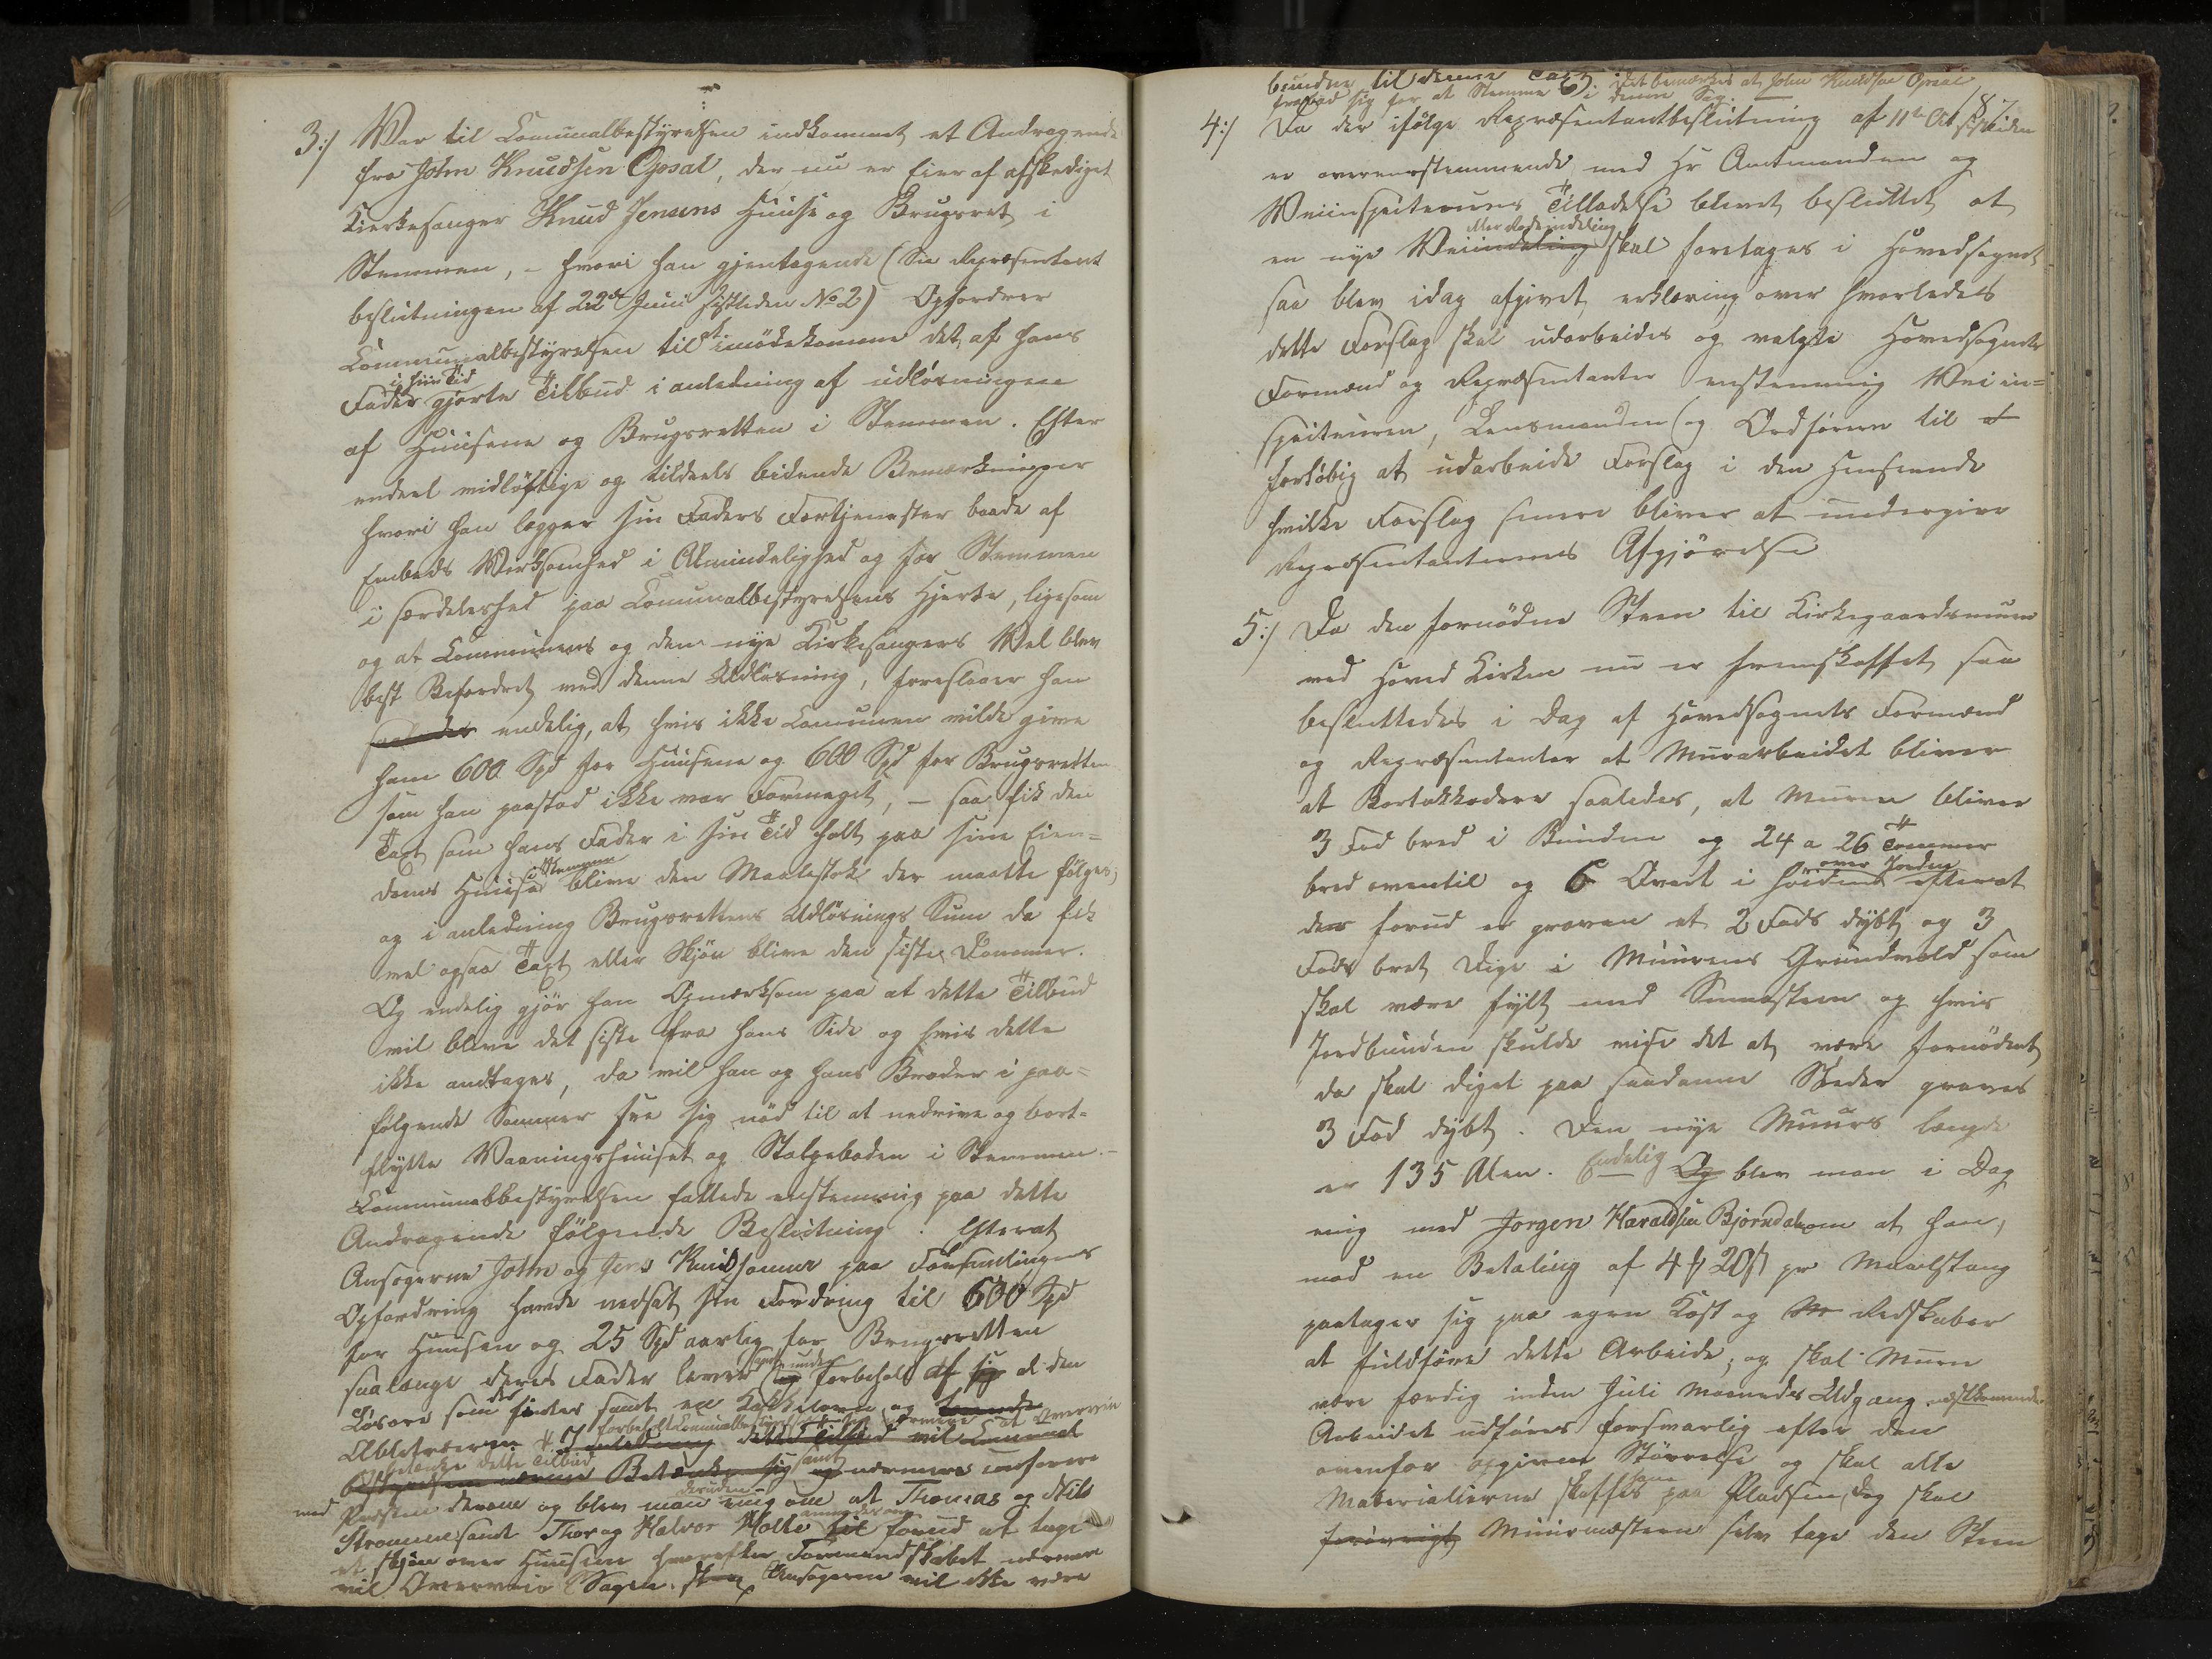 3:/ Var til Communalbestyrelsen indkommet et Andragende
fra John Knudsen Opsal, der nu er Eier af afskediget
Kirkesanger Knud Jensens Huuse og Brugsret i
Stemmen, - hvori han gjentagende (See Repræsentant
beslutningen af 22de Juni sistleden No 2) Opfordrer
Communalbestyrelsen til at imødekomme det af hans
Fader i sin Tid gjorte Tilbud i anledning af udløsningen
af Huusene og Brugsretten i Stemmen. Efter
endeel vidløftige og tildeels bidende Bemærkninger
hvori han lægger sin Faders Fortjenester baade af
Embeds Virksomhed i Almindelighed og for Stemmen
i særdeleshed paa Communalbestyrelsens Hjerte, ligesom
og at Communens og den nye Kirkesangers Vel blev
best Befordret med denne Udløsning, foreslaaer han
endelig, at hvis ikke Communen vilde give
ham 600 Spd for Huusene og 600 Spd for Brugsretten
som han paastod ikke var Formeget, - saa fik den
Taxt som hans Fader i sin Tid holt paa sine Eien-
doms Huuse i Stemmen blive den Maalestok der maatte følges;
og i anledning Brugsrettens Udløsnings Sum da fik
vel ogsaa Taxt eller Skjøn blive den siste Dommer.
Og endelig gjør han Opmærksom paa at dette Tilbud
vil blive det siste fra hans Side og hvis dette
ikke andtages, da vil han og hans Broder i paa-
følgende Sommer see sig nød til at nedrive og bort-
flytte Vaaningshuuset og Stolpeboden i Stemmen.-
Communalbestyrelsen fattede enstemmig paa dette
Andragende følgende Beslutning: Efterat
Ansøgerne John og Jens Knudsønner paa Forsamlingens
Opfordring havde nedsat sin Fordring til 600 Spd
for Huusen og 25 Spd aarlig for Brugsretten
saalænge deres Fader lever samt under forbehold af al den
Løsøre som der findes samt en Kakkelovn og
Abletræerne forbeholdt Communalbestyrelsen sig nærmere at Overveie
dette Tilbud samt nærmere conferere
med Presten derom og blev man desuden enig om at Thomas og Nils
Strømme samt Thor og Halvor Holte forud at tage
et skjøn over Huusene hvorefter Formandskabet nærmere
vil Overveie Sagen. Ansøgerne vil ikke være
bundne til denne Taxt. Det bemærkes at John Knudsen Opsal
fratraad sig for at Stemme i denne Sag.
187
4:/ Da der ifølge Repræsentantbeslutning af 11te Oct sistleden
er overensstemmende med Hr Amtmanden og
Veiinspecteurens Tilladelse blevet besluttet at
en nye Veiindeling eller Rodeindeling skal foretages i Hovedsognet
saa blev idag afgivet erklæring over hvorledes
dette Forslag skal udarbeides og valgte Hovedsognets
Formænd og Repræsentanter enstemmig Veiin-
specteuren, Lensmanden og Ordføreren til
forløbig at udarbeide Forslag i den Henseende
hvilke Forslag senere bliver at undergive
Repræsentanternes Afgjørelse
5:/ Da den fornødne Steen til Kirkegaardsmuren
ved Hoved Kirken nu er fremskaffet, saa
besluttedes i Dag af Hovedsognets Formænd
og Repræsentanter at Murarbeidet bliver
at Bortakkordere saaledes, at Muren bliver
3 Fod bred i Bunden og 24 a 26 Tommer
bred oventil og 6 Qvart i høiden over Jorden efterat
der forud er graven et 2 Fods dybt og 3
Fods bret Dige i Muurens Grundvold som
skal være fylt med Smaasteen og hvis
Jordbunden skulde vise det at være fornødent
da skal diget paa saadanne Steder graves
3 Fod dybt. Den nye Muurs længde
er 135 Alen. Endelig Og blev man i Dag
enig med Jørgen Haraldsen Bjørndalen om at han,
mod en Betaling af 4 20 pr Maalstang
paatager sig paa egen Kost og Redskaber
at fuldføre dette Arbeide; og skal Muren
være færdig inden Juli Maaneds Udgang næstkommende
Arbeidet udføres forsvarlig efter den
ovenfor opgivne Størrelse og skal alle
Materialierne skaffes ham paa Pladsen, dog skal
forøvrigt Muurmæsteren selv tage den Steen